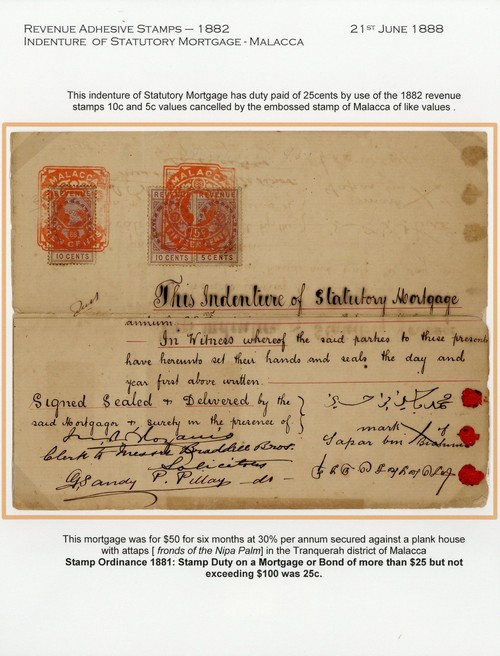 REVENUE ADHESIVE STAMPS – 1882
21ST JUNE 1888
INDENTURE OF STATUTORY MORTGAGE - MALACCA
This indenture of Statutory Mortgage has duty paid of 25cents by use of the 1882 revenue
stamps 10c and 5c values cancelled by the embossed stamp of Malacca of like values .
MALACCA
MALACCA
REVENUE REVENUE
10 CENTS
10 CENTS 5 CENTS
This Indenture of Statutory Mortgage
annum.
In Witness whereof the said parties to these presents
have hereunto set their hands and seals the day and
year first above written.
Signed Sealed & Delivered by the
said Mortgagor & surety in the presence of
mark X of
Sapar bin
Clerk to Messrs Braddell Bros.
Solicitors
G. Sandy P. Pillay - do -
This mortgage was for $50 for six months at 30% per annum secured against a plank house
with attaps [ fronds of the Nipa Palm] in the Tranquerah district of Malacca
Stamp Ordinance 1881: Stamp Duty on a Mortgage or Bond of more than $25 but not
exceeding $100 was 25c.